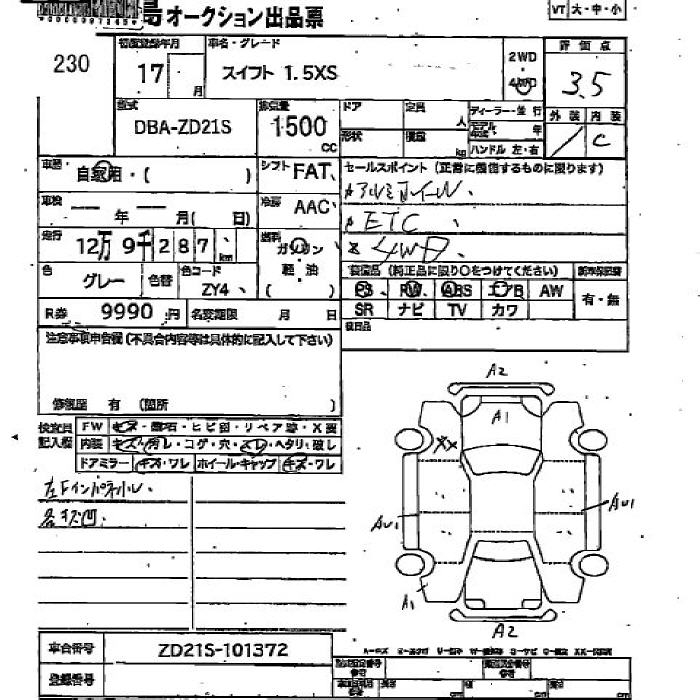 オークション出品票
VT 大・中・小
230
初度登録年月 車名・グレード
17 月 スイフト 1.5XS
2WD
4WD
評価点
3.5
型式 排気量 ドア 定員 人
DBA-ZD21S 1500 cc
形状 積載 kg
ディーラー・並行
モデル 年
ハンドル 左・右
外装 内装
C
車歴 自家用・( )
シフト FAT
セールスポイント (正常に機能するものに限ります)
アルミホイル
車検 年 月( 日)
冷房 AAC
ETC
走行 12万 9千 287 km
燃料 ガソリン
軽油
( )
4WD
色 グレー 色替 色コード ZY4
装備品 (純正品に限り○をつけてください)
PS PW ABS エアB AW
SR ナビ TV カワ
有・無
R券 9990 円 名変期限 月 日
注意事項申告欄 (不具合内容等は具体的に記入して下さい)
修復歴 有 (箇所 )
検査員
記入欄
FW キズ・飛石・ヒビ割・リペア跡・X要
内装 キズ・汚レ・コゲ・穴・スレ・ヘタリ・破レ
ドアミラー キズ・ワレ ホイールキャップ キズ・ワレ
左Fインパネ小ル、
各キズ凹、
A2
A1
XX
AU1
AU1
A1
A2
車台番号 ZD21S-101372
登録番号